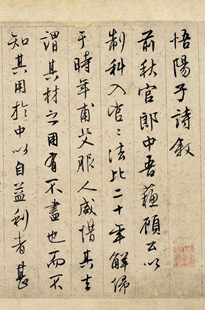 悟陽子詩敘
前秋官郎中吾蘓顧公以
制科入官官法比二十年解佩
于時年甫艾服人咸惜其去
謂其材之用有不盡也而不
知其用於中以自益利者甚